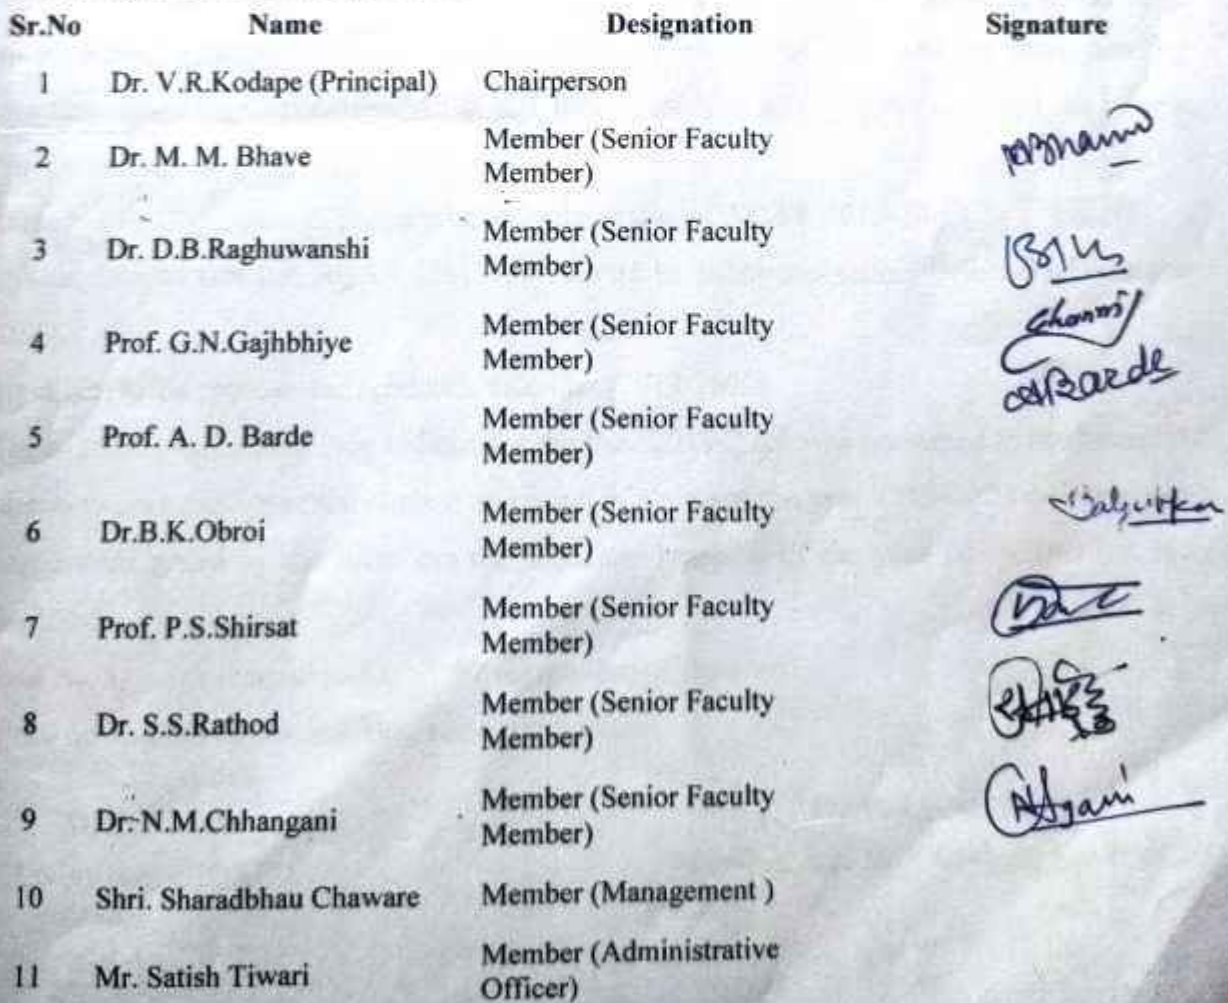 Sr.No Name Designation Signature
1 Dr. V.R.Kodape (Principal) Chairperson
2 Dr. M. M. Bhave Member (Senior Faculty
Member)
3 Dr. D.B.Raghuwanshi Member (Senior Faculty
Member)
4 Prof. G.N.Gajhbhiye Member (Senior Faculty
Member)
5 Prof. A. D. Barde Member (Senior Faculty
Member)
ABarde
6 Dr.B.K.Obroi Member (Senior Faculty
Member)
7 Prof. P.S.Shirsat Member (Senior Faculty
Member)
8 Dr. S.S.Rathod Member (Senior Faculty
Member)
9 Dr. N.M.Chhangani Member (Senior Faculty
Member)
10 Shri. Sharadbhau Chaware Member (Management )
11 Mr. Satish Tiwari Member (Administrative
Officer)